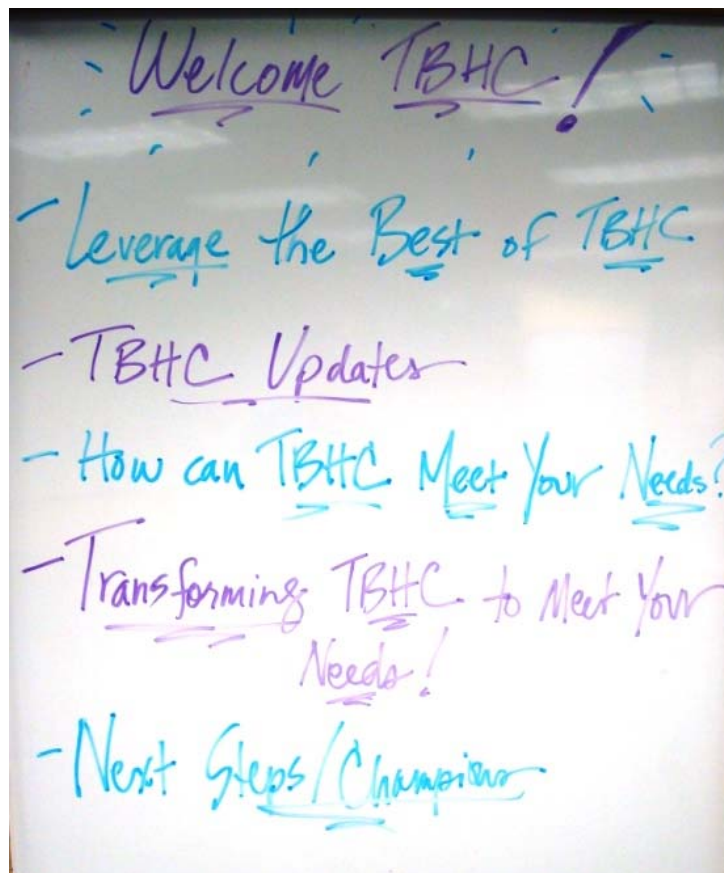 Welcome TBHC!
- Leverage the Best of TBHC
- TBHC Updates
- How can TBHC Meet Your Needs?
- Transforming TBHC to Meet Your
Needs!
- Next Steps/Champions